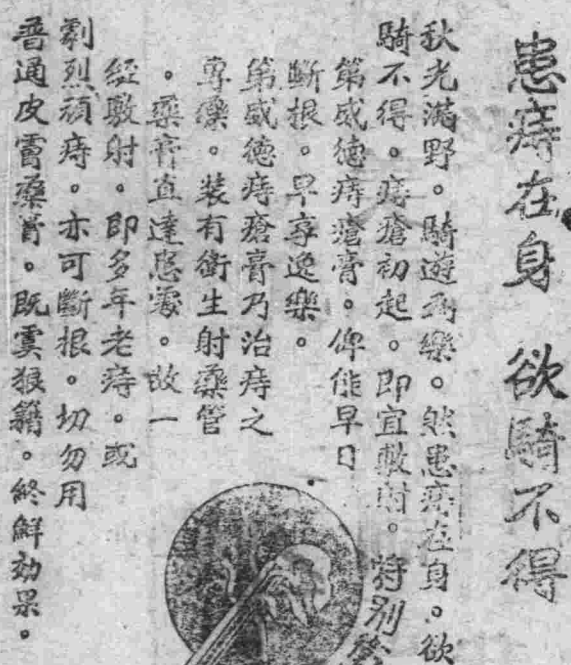 患痔在身 欲騎不得
秋光滿野。騎遊為樂。然患痔在身。欲
騎不得。痔瘡初起。即宜敷射。特別
第威德痔瘡膏。俾能早日
斷根。早享逸樂。
第威德痔瘡膏乃治痔之
專藥。裝有衛生射藥管
。藥膏直達患處。故一
經敷射。即多年老痔。或
劇烈頑痔。亦可斷根。切勿用
普通皮膚藥膏。既虞狼籍。終鮮効果。